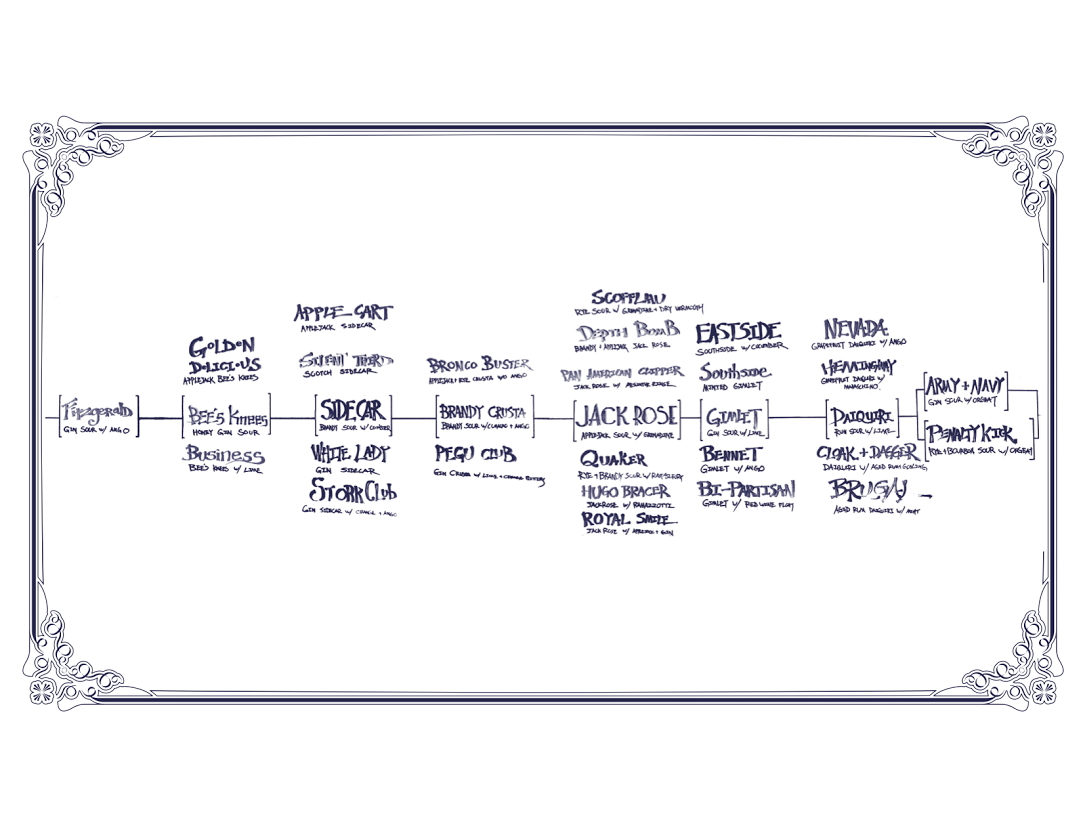 Fitzgerald
GIN SOUR W/ ANGO
GOLDEN
DELICIOUS
APPLEJACK BEE'S KNEES
BEE'S KNEES
HONEY GIN SOUR
BUSINESS
BEE'S KNEES W/ LIME
APPLE CART
APPLEJACK SIDECAR
SILENT THIRD
SCOTCH SIDECAR
SIDECAR
BRANDY SOUR W/ CURACAO
WHITE LADY
GIN SIDECAR
STORK CLUB
GIN SIDECAR W/ ORANGE + ANGO
BRONCO BUSTER
APPLEJACK + RYE CRUSTA W/O ANGO
BRANDY CRUSTA
BRANDY SOUR W/ CURACAO + ANGO
PEGU CLUB
GIN CRUSTA W/ LIME + ORANGE BITTERS
SCOFFLAW
RYE SOUR W/ GRENADINE + DRY VERMOUTH
DEPTH BOMB
BRANDY + APPLEJACK JACK ROSE
PAN AMERICAN CLIPPER
JACK ROSE W/ ABSINTHE RINSE
JACK ROSE
APPLEJACK SOUR W/ GRENADINE
QUAKER
RYE + BRANDY SOUR W/ RASPBERRY
HUGO BRACER
JACK ROSE W/ RAMAZZOTTI
ROYAL SMILE
JACK ROSE W/ APPLEJACK + GIN
EASTSIDE
SOUTHSIDE W/ CUCUMBER
Southside
MINTED GIMLET
GIMLET
GIN SOUR W/ LIME
BENNET
GIMLET W/ ANGO
BI-PARTISAN
GIMLET W/ RED WINE FLOAT
NEVADA
GRAPEFRUIT DAIQUIRI W/ ANGO
HEMINGWAY
GRAPEFRUIT DAIQUIRI W/
MARASCHINO
DAIQUIRI
RUM SOUR W/ LIME
CLOAK + DAGGER
DAIQUIRI W/ AGED RUM
AGED RUM DAIQUIRI W/
ARMY + NAVY
GIN SOUR W/ ORGEAT
PENALTY KICK
RYE + BOURBON SOUR W/ ORGEAT